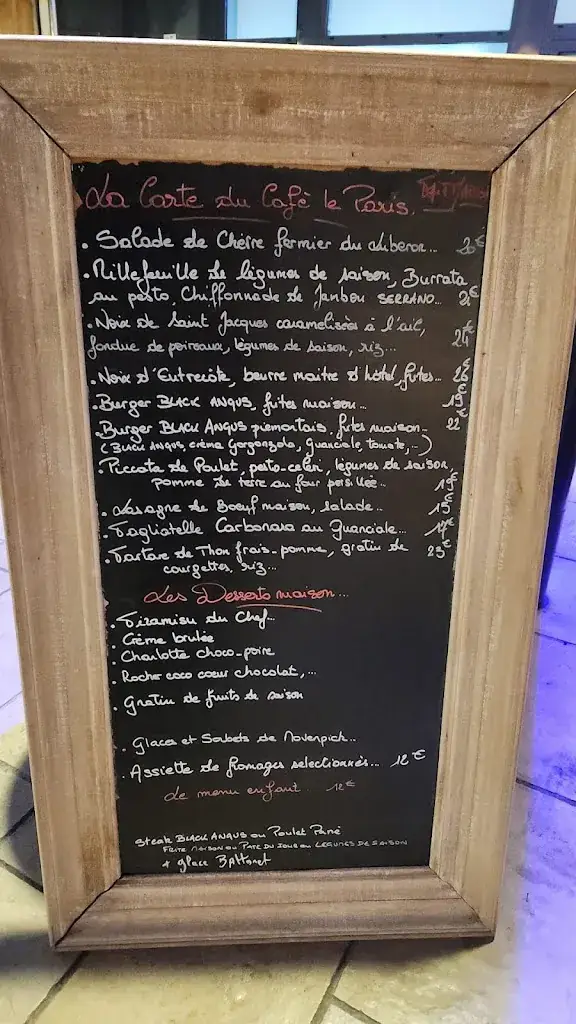 La Carte du Café le Paris.
. Salade de Chèvre fermier du Luberon... 20€
. Millefeuille de légumes de saison, Burrata
au pesto, Chiffonnade de Jambon SERRANO... 21€
. Noix de Saint Jacques caramelisées à l'ail, 24€
fondue de poireaux, légumes de saison, riz...
. Noix d'Entrecôte, beurre maitre d'hôtel, frites... 26€
. Burger BLACK ANGUS, frites maison... 19€
. Burger BLACK ANGUS piemontais, frites maison... 22€
(BLACK ANGUS, crème Gorgonzola, guanciale, tomate,...)
. Piccata de Poulet, pesto-celeri, légumes de saison,
pomme de terre au four persillée... 19€
. Lasagne de Boeuf maison, salade... 15€
. Tagliatelle Carbonara au Guanciale... 17€
. Tartare de Thon frais-pomme, gratin de 23€
courgettes, riz...
Les Desserts maison...
. Tiramisu du Chef...
. Crème brulée
. Charlotte choco-poire
. Rocher coco coeur chocolat,...
. Gratin de fruits de saison
. Glaces et Sorbets de Movenpick...
. Assiette de fromages selectionnés... 12€
Le menu enfant... 12€
steak BLACK ANGUS ou Poulet Pané
FRITE MAISON OU PATE DU JOUR OU LEGUMES DE SAISON
+ glace Bâtonnet